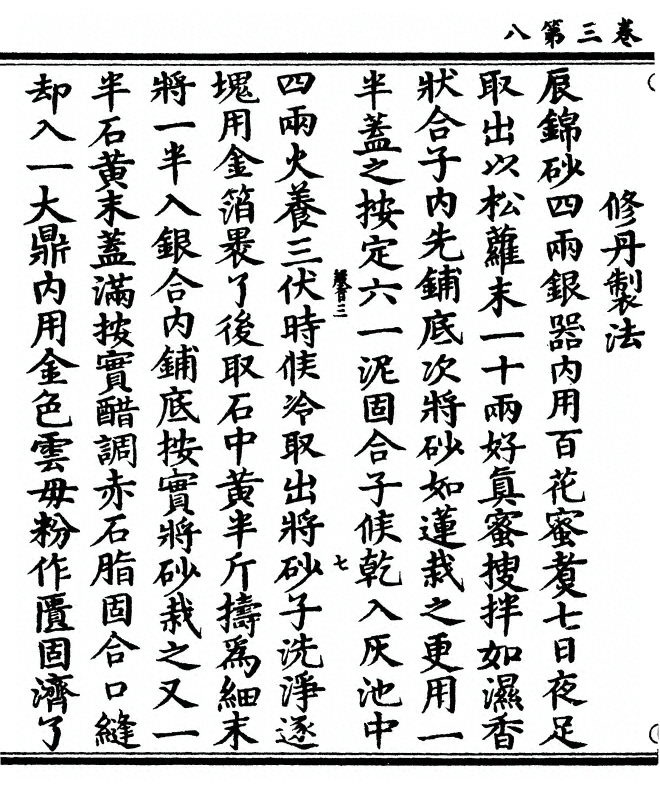 卷三第八
修丹製法
辰錦砂四兩銀器内用百花蜜煑七日夜足
取出以松蘿末一十兩好眞蜜搜拌如濕香
狀合子内先鋪底次將砂如蓮栽之更用一
半蓋之按定六一泥固合子候乾入灰池中
七
四兩火養三伏時候冷取出將砂子洗淨逐
塊用金箔褁了後取石中黄半斤擣爲細末
將一半入銀合内鋪底按實將砂栽之又一
半石黄末蓋滿按實醋調赤石脂固合口縫
却入一大鼎内用金色雲母粉作匱固濟了